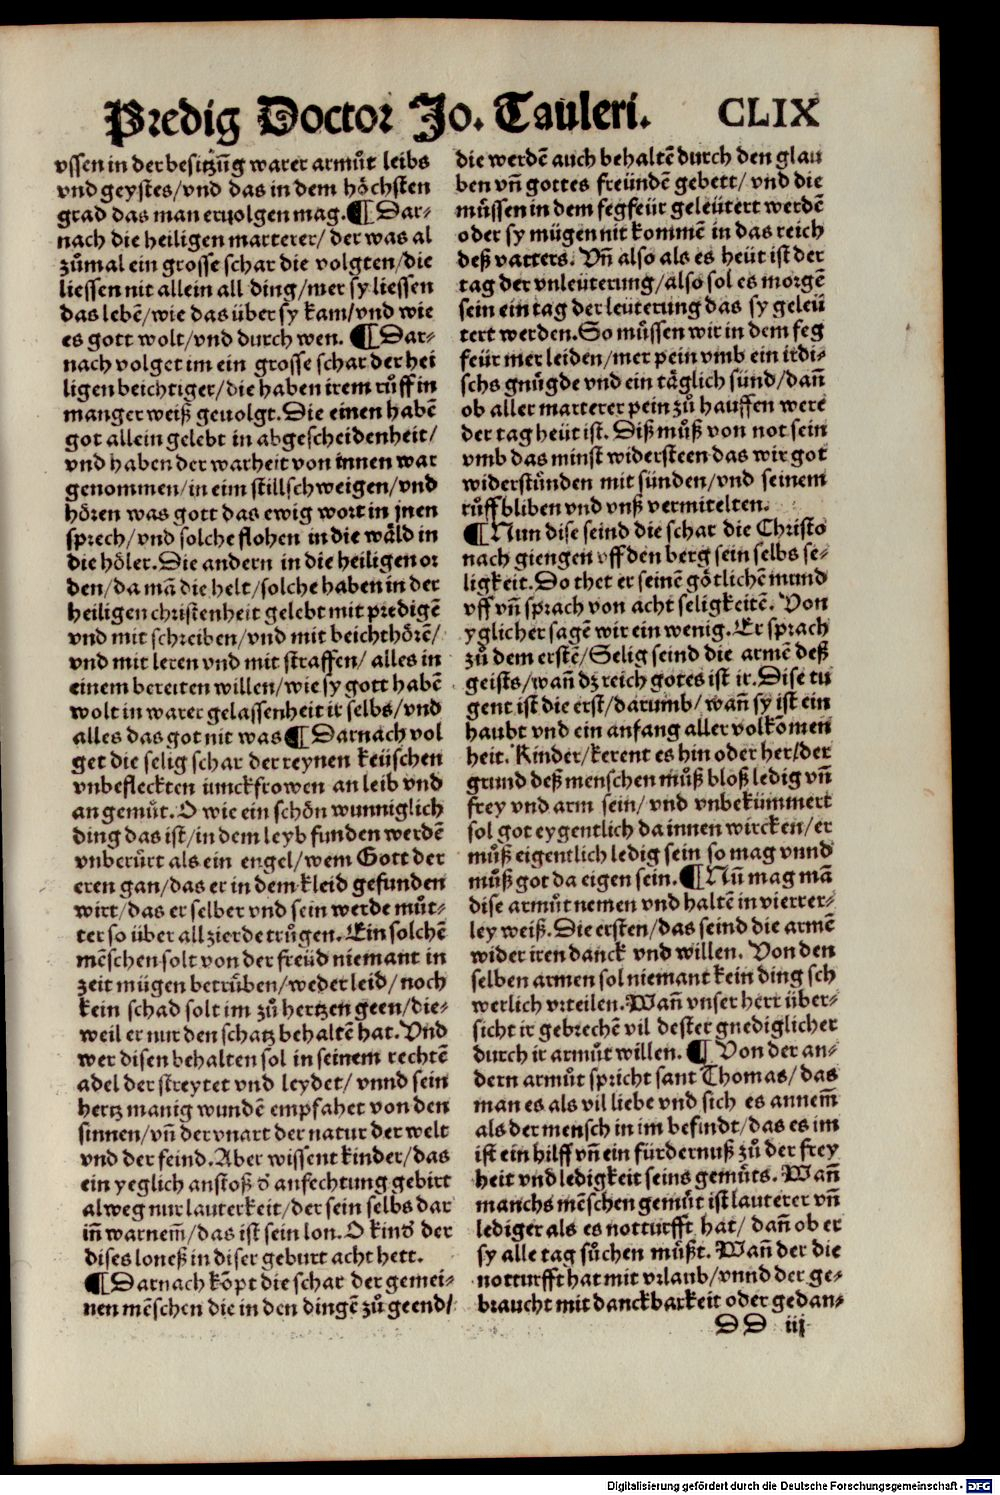 Predig Doctor Jo. Tauleri. CLIX
vssen in der besitzūg warer armůt leibs
vnd geystes/vnd das in dem höchsten
grad das man eruolgen mag.¶ Dar-
nach die heiligen marterer/ der was al
zůmal ein grosse schar die volgten/die
liessen nit allein all ding/mer sy liessen
das lebē/wie das über sy kam/vnd wie
es gott wolt/vnd durch wen. ¶ Dar-
nach volget im ein grosse schar der hei
ligen beichtiger/die haben irem růff in
manger weiß geuolgt. Die einen habē
got allein gelebt in abgescheidenheit/
vnd haben der warheit von innen war
genommen/in eim stillschweigen/vnd
hören was gott das ewig wort in jnen
sprech/vnd solche flohen in die wäld in
die höler. Die andern in die heiligen or
den/da mā die helt/solche haben in der
heiligen christenheit gelebt mit predigē
vnd mit schreiben/vnd mit beichthörē/
vnd mit leren vnd mit straffen/ alles in
einem bereiten willen/wie sy gott habē
wolt in warer gelassenheit ir selbs/vnd
alles das got nit was¶ Darnach vol
get die selig schar der reynen keüschen
vnbefleckten iunckfrowen an leib vnd
an gemůt. O wie ein schön wunniglich
ding das ist/in dem leyb funden werdē
vnberůrt als ein engel/wem Gott der
eren gan/das er in dem kleid gefunden
wirt/das er selber vnd sein werde můt-
ter so über all zierde trůgen. Ein solchē
mēschen solt von der freüd niemant in
zeit mügen betrüben/weder leid/noch
kein schad solt im zů hertzen geen/die-
weil er nur den schatz behaltē hat. Vnd
wer disen behalten sol in seinem rechtē
adel der streytet vnd leydet/ vnnd sein
hertz manig wundē empfahet von den
sinnen/vn̄ der vnart der natur der welt
vnd der feind. Aber wissent kinder/das
ein yeglich anstoß d̄ anfechtung gebirt
alweg nur lauterkeit/der sein selbs dar
in̄ warnem̄/das ist sein lon. O kind̄ der
dises loneß in diser geburt acht hett.
¶ Darnach kōpt die schar der gemei-
nen mēschen die in den dingē zů geend/
die werdē auch behaltē durch den glau
ben vn̄ gottes freündē gebett/ vnd die
müssen in dem fegfeür geleütert werdē
oder sy mügen nit kommē in das reich
deß vatters. Vn̄ also als es heüt ist der
tag der vnleüterung/also sol es morgē
sein ein tag der leüterung das sy geleü
tert werden. So müssen wir in dem feg
feür mer leiden/mer pein vmb ein irdi-
schs gnügde vnd ein täglich sünd/dan̄
ob aller marterer pein zů hauffen were
der tag heüt ist. Diß můß von not sein
vmb das minst widersteen das wir got
widerstünden mit sünden/vnd seinem
růff bliben vnd vnß vermitelten.
¶ Nun dise seind die schar die Christo
nach giengen vff den berg sein selbs se-
ligkeit. Do thet er seinē götlichē mund
vff vn̄ sprach von acht seligkeitē. Von
yglicher sagē wir ein wenig. Er sprach
zů dem erstē/Selig seind die armē deß
geists/wan̄ dz reich gotes ist ir. Dise tu
gent ist die erst/darumb/ wan̄ sy ist ein
haubt vnd ein anfang aller volkōmen
heit. Kinder/kerent es hin oder her/der
grund deß menschen můß bloß ledig vn̄
frey vnd arm sein/ vnd vnbekümmert
sol got eygentlich da innen wircken/er
můß eigentlich ledig sein so mag vnnd
můß got da eigen sein.¶ Nū mag mā
dise armůt nemen vnd haltē in vierrer-
ley weiß. Die ersten/das seind die armē
wider iren danck vnd willen. Von den
selben armen sol niemant kein ding sch
werlich vrteilen. Wan̄ vnser herr über-
sicht ir gebrechē vil dester gnediglicher
durch ir armůt willen. ¶ Von der an-
dern armůt spricht sant Thomas/das
man es als vil liebe vnd sich es annem̄
als der mensch in im befindt/das es im
ist ein hilff vn̄ ein fürdernuß zů der frey
heit vnd ledigkeit seins gemůts. Wan̄
manchs mēschen gemůt ist lauterer vn̄
lediger als es notturfft hat/ dan̄ ob er
sy alle tag sůchen müßt. Wan̄ der die
notturfft hat mit vrlaub/vnnd der ge-
braucht mit danckbarkeit oder gedan-
DD iij
Digitalisierung gefördert durch die Deutsche Forschungsgemeinschaft - DFG